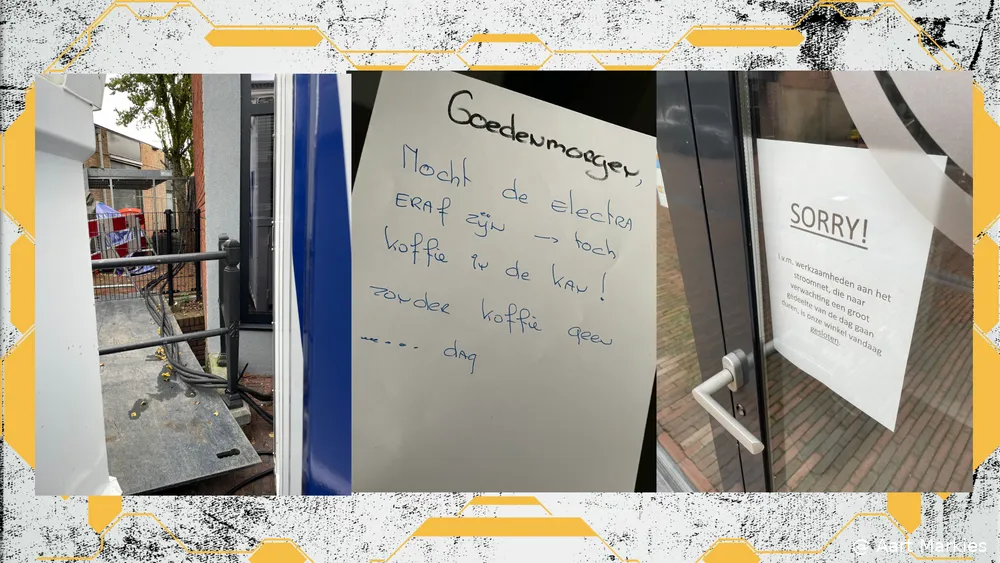 Goedenmorgen,
Mocht de electra
eraf zijn → toch
koffie in de kan!
zonder koffie geen
..... dag
SORRY!
I.v.m. werkzaamheden aan het
stroomnet, die naar
verwachting een groot
gedeelte van de dag gaan
duren, is onze winkel vandaag
gesloten.
© Aart Markies